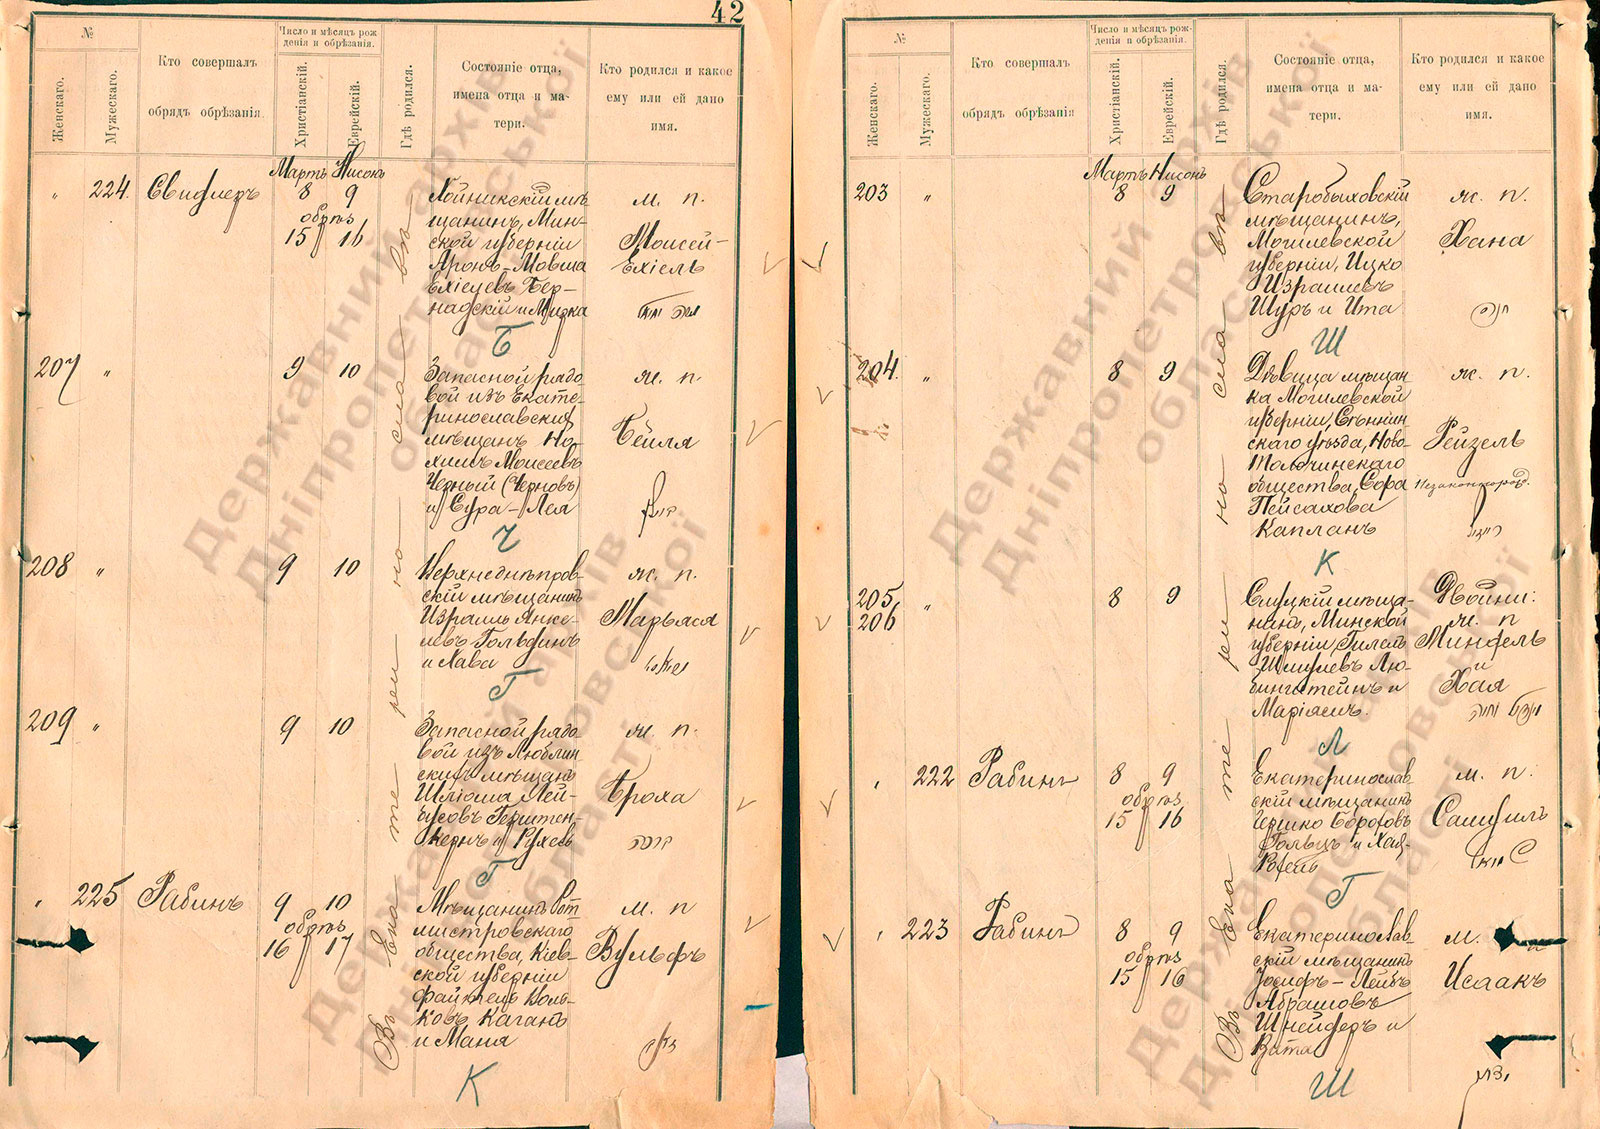 42
№
Женскаго.
Мужескаго.
Кто совершалъ
обрядъ обрѣзанія.
Число и мѣсяцъ рож
денія и обрѣзанія.
Христіанскій.
Еврейскій.
Гдѣ родился.
Состояніе отца,
имена отца и ма-
тери.
Кто родился и какое
ему или ей дано
имя.
Мартъ Нисонъ
" 224. Свифлеръ 8 9
обрѣз
15 16
Хойникскій мѣ
щанинъ, Мин-
ской губерніи
Аронъ-Мовша
Ехіелевъ Бер-
надскій и Мирка
м. п.
Моисей-
Ехіель
Б
207 " 9 10
Запасной рядо
вой изъ Екате-
ринославскихъ
мѣщанъ Но-
химъ Моисеевъ
Черный (Черновъ)
и Сура-Лея
ж. п.
Бейля
Ч
208 " 9 10
Верхнеднѣпров-
скій мѣщанинъ
Израиль Янке-
левъ Гольдинъ
и Хава
ж. п.
Марьяся
Г
209 " 9 10
Запасной рядо-
вой изъ Люблин
скихъ мѣщанъ
Шліома Лей-
бусовъ Герштен-
кернъ и Рухель
ж. п.
Броха
Г
" 225 Рабинъ 9 10
обрѣз
16 17
Мѣщанинъ Рот-
мистровскаго
общества, Кіев-
ской губерніи
Файтель Воль-
ковъ Каганъ
и Маня
м. п
Вульфъ
К
Въ Екатеринославѣ
№
Женскаго.
Мужескаго.
Кто совершалъ
обрядъ обрѣзанія
Число и мѣсяцъ рож-
денія и обрѣзанія.
Христіанскій.
Еврейскій.
Гдѣ родился.
Состояніе отца,
имена отца и ма-
тери.
Кто родился и какое
ему или ей дано
имя.
Мартъ Нисонъ
203 " 8 9
Старобыховскій
мѣщанинъ,
Могилевской
губерніи, Ицко
Израилевъ
Шуръ и Ита
ж. п.
Хана
Ш
204. " 8 9
Дѣвица мѣщан
ка Могилевской
губерніи, Сѣннин
скаго уѣзда, Ново-
Толочинскаго
общества, Сора
Пейсахова
Капланъ
ж. п.
Рейзель
Незаконнорожд.
К
205
206 " 8 9
Слуцкій мѣща-
нинъ, Минской
губерніи, Гилель
Шмулевъ Лю-
бингштейнъ и
Маріясъ.
Двойни:
ж. п
Миндель
и
Хая
Л
" 222 Рабинъ 8 9
обрѣз
15 16
Екатеринослав
скій мѣщанинъ
Гершко Боруховъ
Гольцъ и Хая-
Рейзь
м. п.
Самуилъ
Г
" 223 Рабинъ 8 9
обрѣз
15 16
Екатеринослав-
скій мѣщанинъ
Іосифъ-Лейбъ
Абрамовъ
Шнейдеръ и
Злата
м.
Исаакъ
Ш
Въ Екатеринославѣ
Державний архів
Дніпропетровської
області